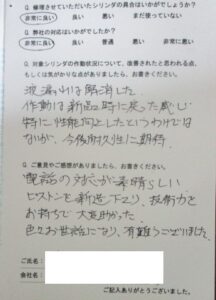 Q. 修理させていただいたシリンダの具合はいかがでしょうか？
非常に良い 良い 悪い まだ使っていない
Q. 弊社の対応はいかがでしたか？
非常に良い 良い 普通 悪い 非常に悪い
Q. 対象シリンダの作動状況について、改善されたと思われる点、
もしくは気がかりな点がありましたら、お書きください。
液漏れは解消した。
作動は新品時に戻った感じ
特に性能向上したというわけでは
ないが、今後耐久性に期待
Q. ご意見やご感想がありましたら、お書きください。
電話の対応が素晴らしい
ピストンを新造下さり、技術力を
お持ちで大変助かった
色々お世話になり、有難うございました。
ご氏名：
会社名：
ご記入ありがとうございました。